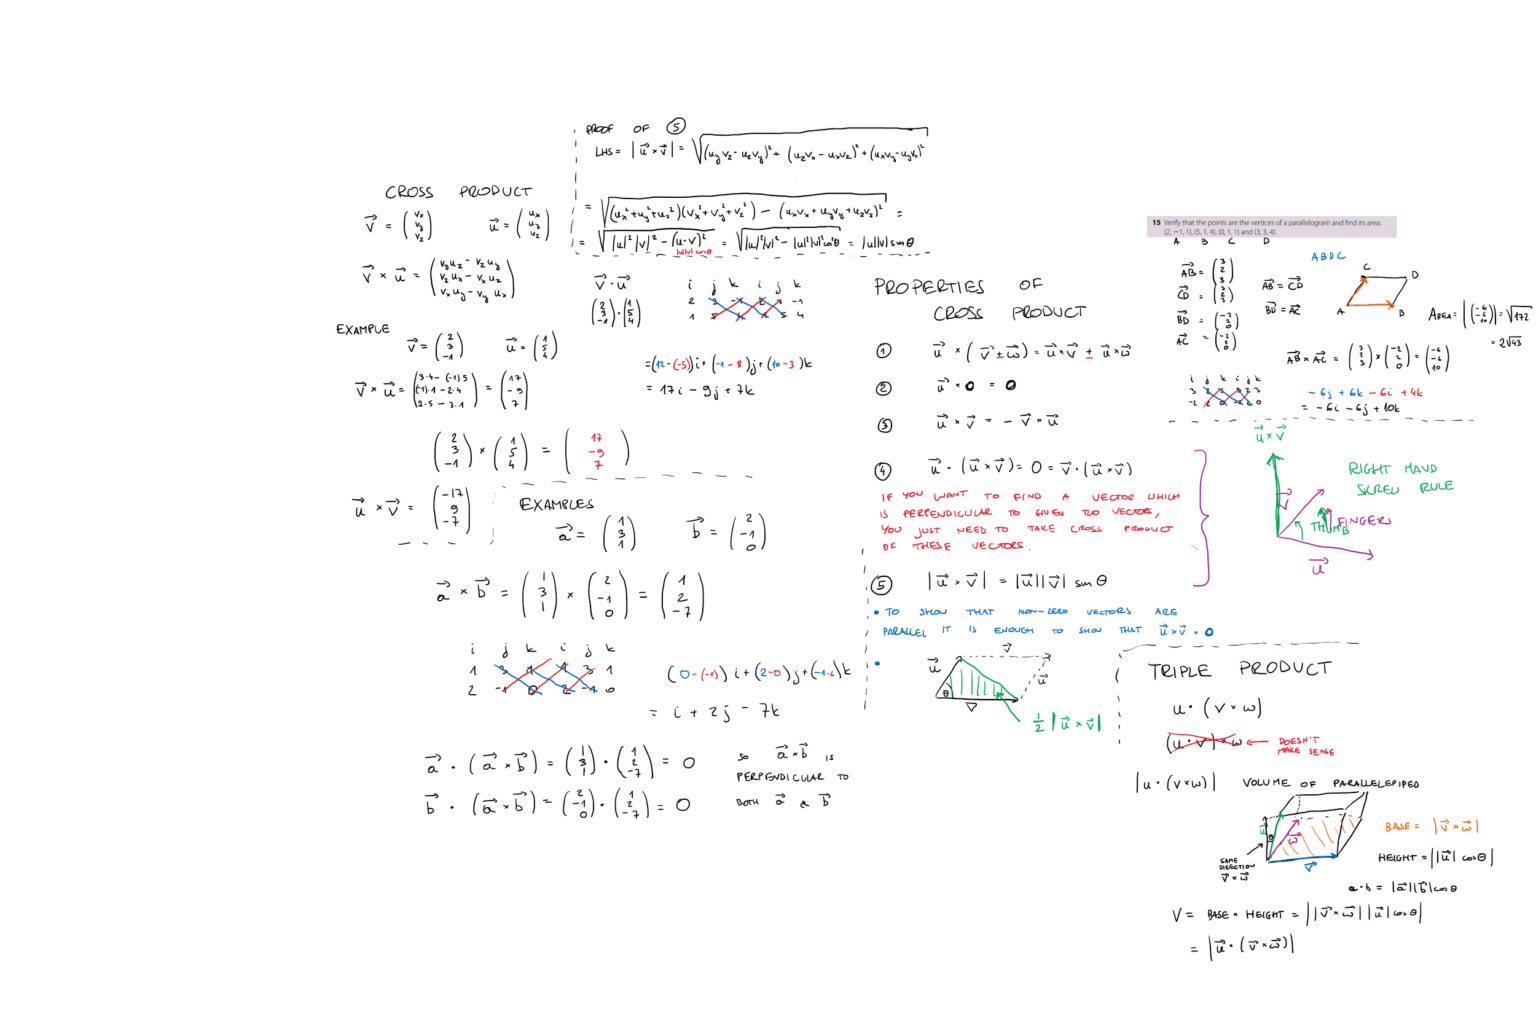 CROSS PRODUCT
v⃗ = (vx vy vz) u⃗ = (ux uy uz)
v⃗ × u⃗ = (vyuz - vzuy vzux - vxuz vxuy - vyux)
EXAMPLE
v⃗ = (2 3 -1) u⃗ = (1 5 4)
v⃗ × u⃗ = (3·4 - (-1)5 (-1)·1 - 2·4 2·5 - 3·1) = (17 -9 7)
(2 3 -1) × (1 5 4) = (17 -9 7)
u⃗ × v⃗ = (-17 9 -7)
PROOF OF 5
LHS = |u⃗ × v⃗| = √(uyvz - uzvy)² + (uzvx - uxvz)² + (uxvy - uyvx)²
= √(ux² + uy² + uz²)(vx² + vy² + vz²) - (uxvx + uyvy + uzvz)² =
= √|u|²|v|² - (u·v)² = √|u|²|v|² - |u|²|v|²cos²θ = |u||v| sinθ
|u||v| cosθ
v⃗ · u⃗
(2 3 -1) · (1 5 4)
i j k i j k
2 3 -1 2 3 -1
1 5 4 1 5 4
= (12 - (-5))i + (-1 - 8)j + (10 - 3)k
= 17i - 9j + 7k
EXAMPLES
a⃗ = (1 3 1) b⃗ = (2 -1 0)
a⃗ × b⃗ = (1 3 1) × (2 -1 0) = (1 2 -7)
i j k i j k
1 3 1 1 3 1
2 -1 0 2 -1 0
(0 - (-1))i + (2 - 0)j + (-1 - 6)k
= i + 2j - 7k
a⃗ · (a⃗ × b⃗) = (1 3 1) · (1 2 -7) = 0
b⃗ · (a⃗ × b⃗) = (2 -1 0) · (1 2 -7) = 0
SO a⃗ × b⃗ IS
PERPENDICULAR TO
BOTH a⃗ & b⃗
PROPERTIES OF
CROSS PRODUCT
1 u⃗ × (v⃗ ± w⃗) = u⃗ × v⃗ ± u⃗ × w⃗
2 u⃗ × 0 = 0
3 u⃗ × v⃗ = - v⃗ × u⃗
4 u⃗ · (u⃗ × v⃗) = 0 = v⃗ · (u⃗ × v⃗)
IF YOU WANT TO FIND A VECTOR WHICH
IS PERPENDICULAR TO GIVEN TWO VECTORS,
YOU JUST NEED TO TAKE CROSS PRODUCT
OF THESE VECTORS.
5 |u⃗ × v⃗| = |u⃗||v⃗| sin θ
• TO SHOW THAT NON-ZERO VECTORS ARE
PARALLEL IT IS ENOUGH TO SHOW THAT u⃗ × v⃗ = 0
•
v⃗
u⃗ u⃗
θ
v⃗
½ |u⃗ × v⃗|
15 Verify that the points are the vertices of a parallelogram and find its area:
(2, −1, 1), (5, 1, 4), (0, 1, 1) and (3, 3, 4).
A B C D
ABDC
AB⃗ = (3 2 3)
CD⃗ = (3 2 3)
BD⃗ = (-2 2 0)
AC⃗ = (-2 2 0)
AB⃗ = CD⃗
BD⃗ = AC⃗
C D
A B
AREA = |(-6 -6 10)| = √172
= 2√43
AB⃗ × AC⃗ = (3 2 3) × (-2 2 0) = (-6 -6 10)
i j k i j k
3 2 3 3 2 3
-2 2 0 -2 2 0
-6j + 6k - 6i + 4k
= -6i - 6j + 10k
u⃗ × v⃗
RIGHT HAND
SCREW RULE
v⃗
THUMB
FINGERS
u⃗
TRIPLE PRODUCT
u · (v × w)
(u · v) × w ← DOESN'T
MAKE SENSE
|u · (v × w)| VOLUME OF PARALLELEPIPED
u⃗ θ w⃗
v⃗
SAME
DIRECTION
v⃗ × w⃗
BASE = |v⃗ × w⃗|
HEIGHT = ||u⃗| cosθ|
a·b = |a⃗||b⃗| cosθ
V = BASE × HEIGHT = ||v⃗ × w⃗||u⃗| cosθ|
= |u⃗ · (v⃗ × w⃗)|